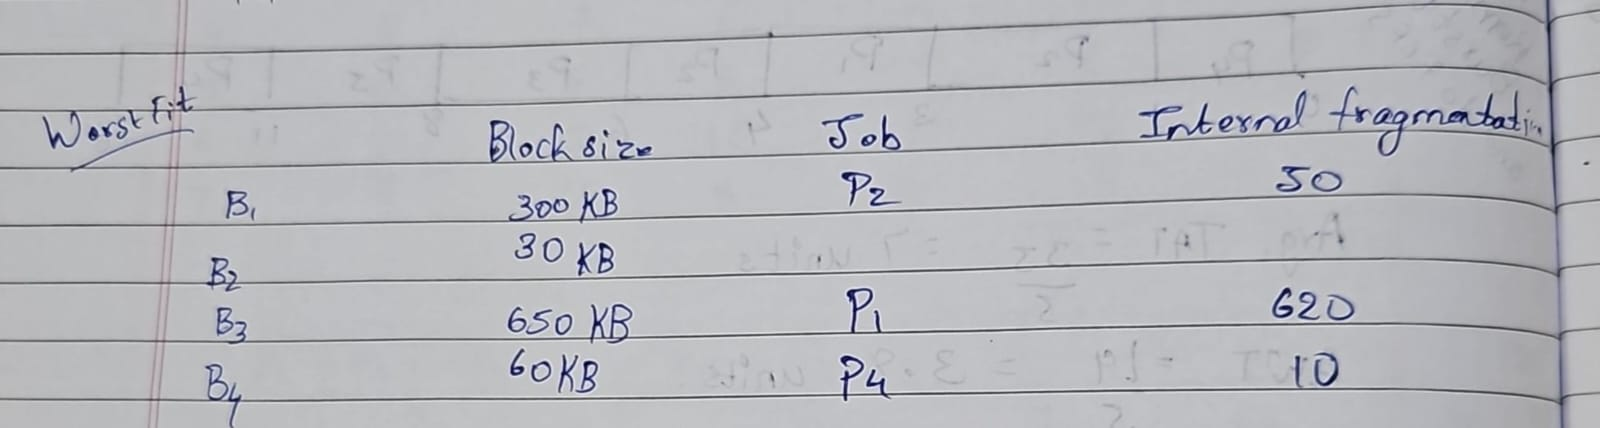 Worst Fit
Block size Job Internal fragmentation
B1 300 KB P2 50
B2 30 KB
B3 650 KB P1 620
B4 60KB P4 10